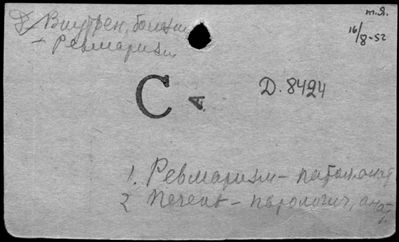 т.Я.
16/8-52
Внутрен. болезни
- Ревматизм
С А
Д. 8424
1. Ревматизм - патол. анат
2 Печень - патологич. анат.